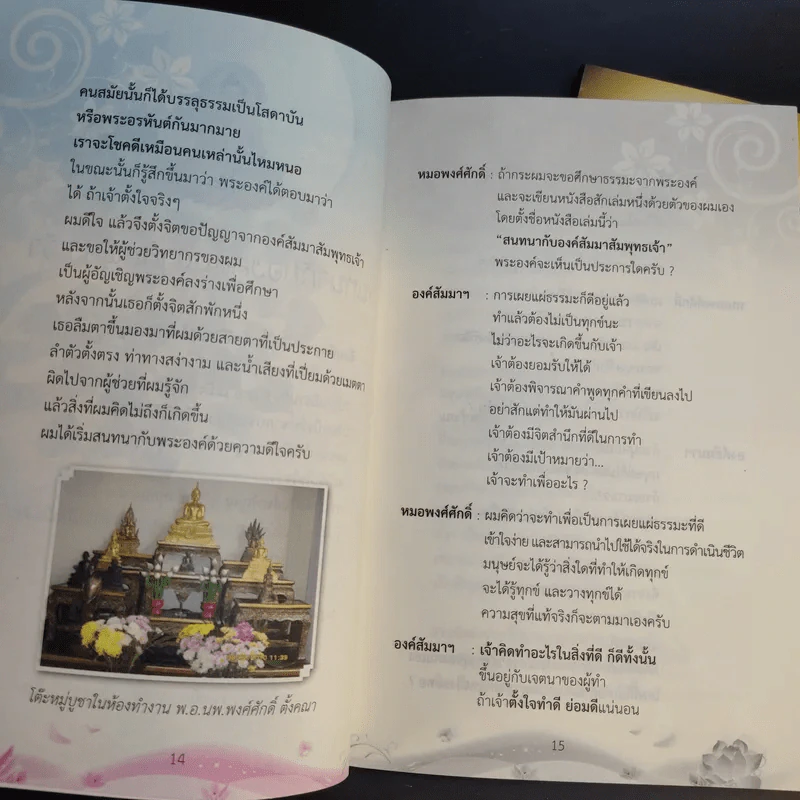 คนสมัยนั้นก็ได้บรรลุธรรมเป็นโสดาบัน
หรือพระอรหันต์กันมากมาย
เราจะโชคดีเหมือนคนเหล่านั้นไหมหนอ
ในขณะนั้นก็รู้สึกขึ้นมาว่า พระองค์ได้ตอบมาว่า
ได้ ถ้าเจ้าตั้งใจจริงๆ
ผมดีใจ แล้วจึงตั้งจิตขอปัญญาจากองค์สัมมาสัมพุทธเจ้า
และขอให้ผู้ช่วยวิทยากรของผม
เป็นผู้อัญเชิญพระองค์ลงร่างเพื่อศึกษา
หลังจากนั้นเธอก็ตั้งจิตสักพักหนึ่ง
เธอลืมตาขึ้นมองมาที่ผมด้วยสายตาที่เป็นประกาย
ลำตัวตั้งตรง ท่าทางสง่างาม และน้ำเสียงที่เปี่ยมด้วยเมตตา
ผิดไปจากผู้ช่วยที่ผมรู้จัก
แล้วสิ่งที่ผมคิดไม่ถึงก็เกิดขึ้น
ผมได้เริ่มสนทนากับพระองค์ด้วยความดีใจครับ
11:39
โต๊ะหมู่บูชาในห้องทำงาน พ.อ.นพ.พงศ์ศักดิ์ ตั้งคณา
14
หมอพงศ์ศักดิ์ : ถ้ากระผมจะขอศึกษาธรรมะจากพระองค์
และจะเขียนหนังสือสักเล่มหนึ่งด้วยตัวของผมเอง
โดยตั้งชื่อหนังสือเล่มนี้ว่า
“สนทนากับองค์สัมมาสัมพุทธเจ้า”
พระองค์จะเห็นเป็นประการใดครับ ?
องค์สัมมาฯ : การเผยแผ่ธรรมะก็ดีอยู่แล้ว
ทำแล้วต้องไม่เป็นทุกข์นะ
ไม่ว่าอะไรจะเกิดขึ้นกับเจ้า
เจ้าต้องยอมรับให้ได้
เจ้าต้องพิจารณาคำพูดทุกคำที่เขียนลงไป
อย่าสักแต่ทำให้มันผ่านไป
เจ้าต้องมีจิตสำนึกที่ดีในการทำ
เจ้าต้องมีเป้าหมายว่า...
เจ้าจะทำเพื่ออะไร ?
หมอพงศ์ศักดิ์ : ผมคิดว่าจะทำเพื่อเป็นการเผยแผ่ธรรมะที่ดี
เข้าใจง่าย และสามารถนำไปใช้ได้จริงในการดำเนินชีวิต
มนุษย์จะได้รู้ว่าสิ่งใดที่ทำให้เกิดทุกข์
จะได้รู้ทุกข์ และวางทุกข์ได้
ความสุขที่แท้จริงก็จะตามมาเองครับ
องค์สัมมาฯ : เจ้าคิดทำอะไรในสิ่งที่ดี ก็ดีทั้งนั้น
ขึ้นอยู่กับเจตนาของผู้ทำ
ถ้าเจ้าตั้งใจทำดี ย่อมดีแน่นอน
15